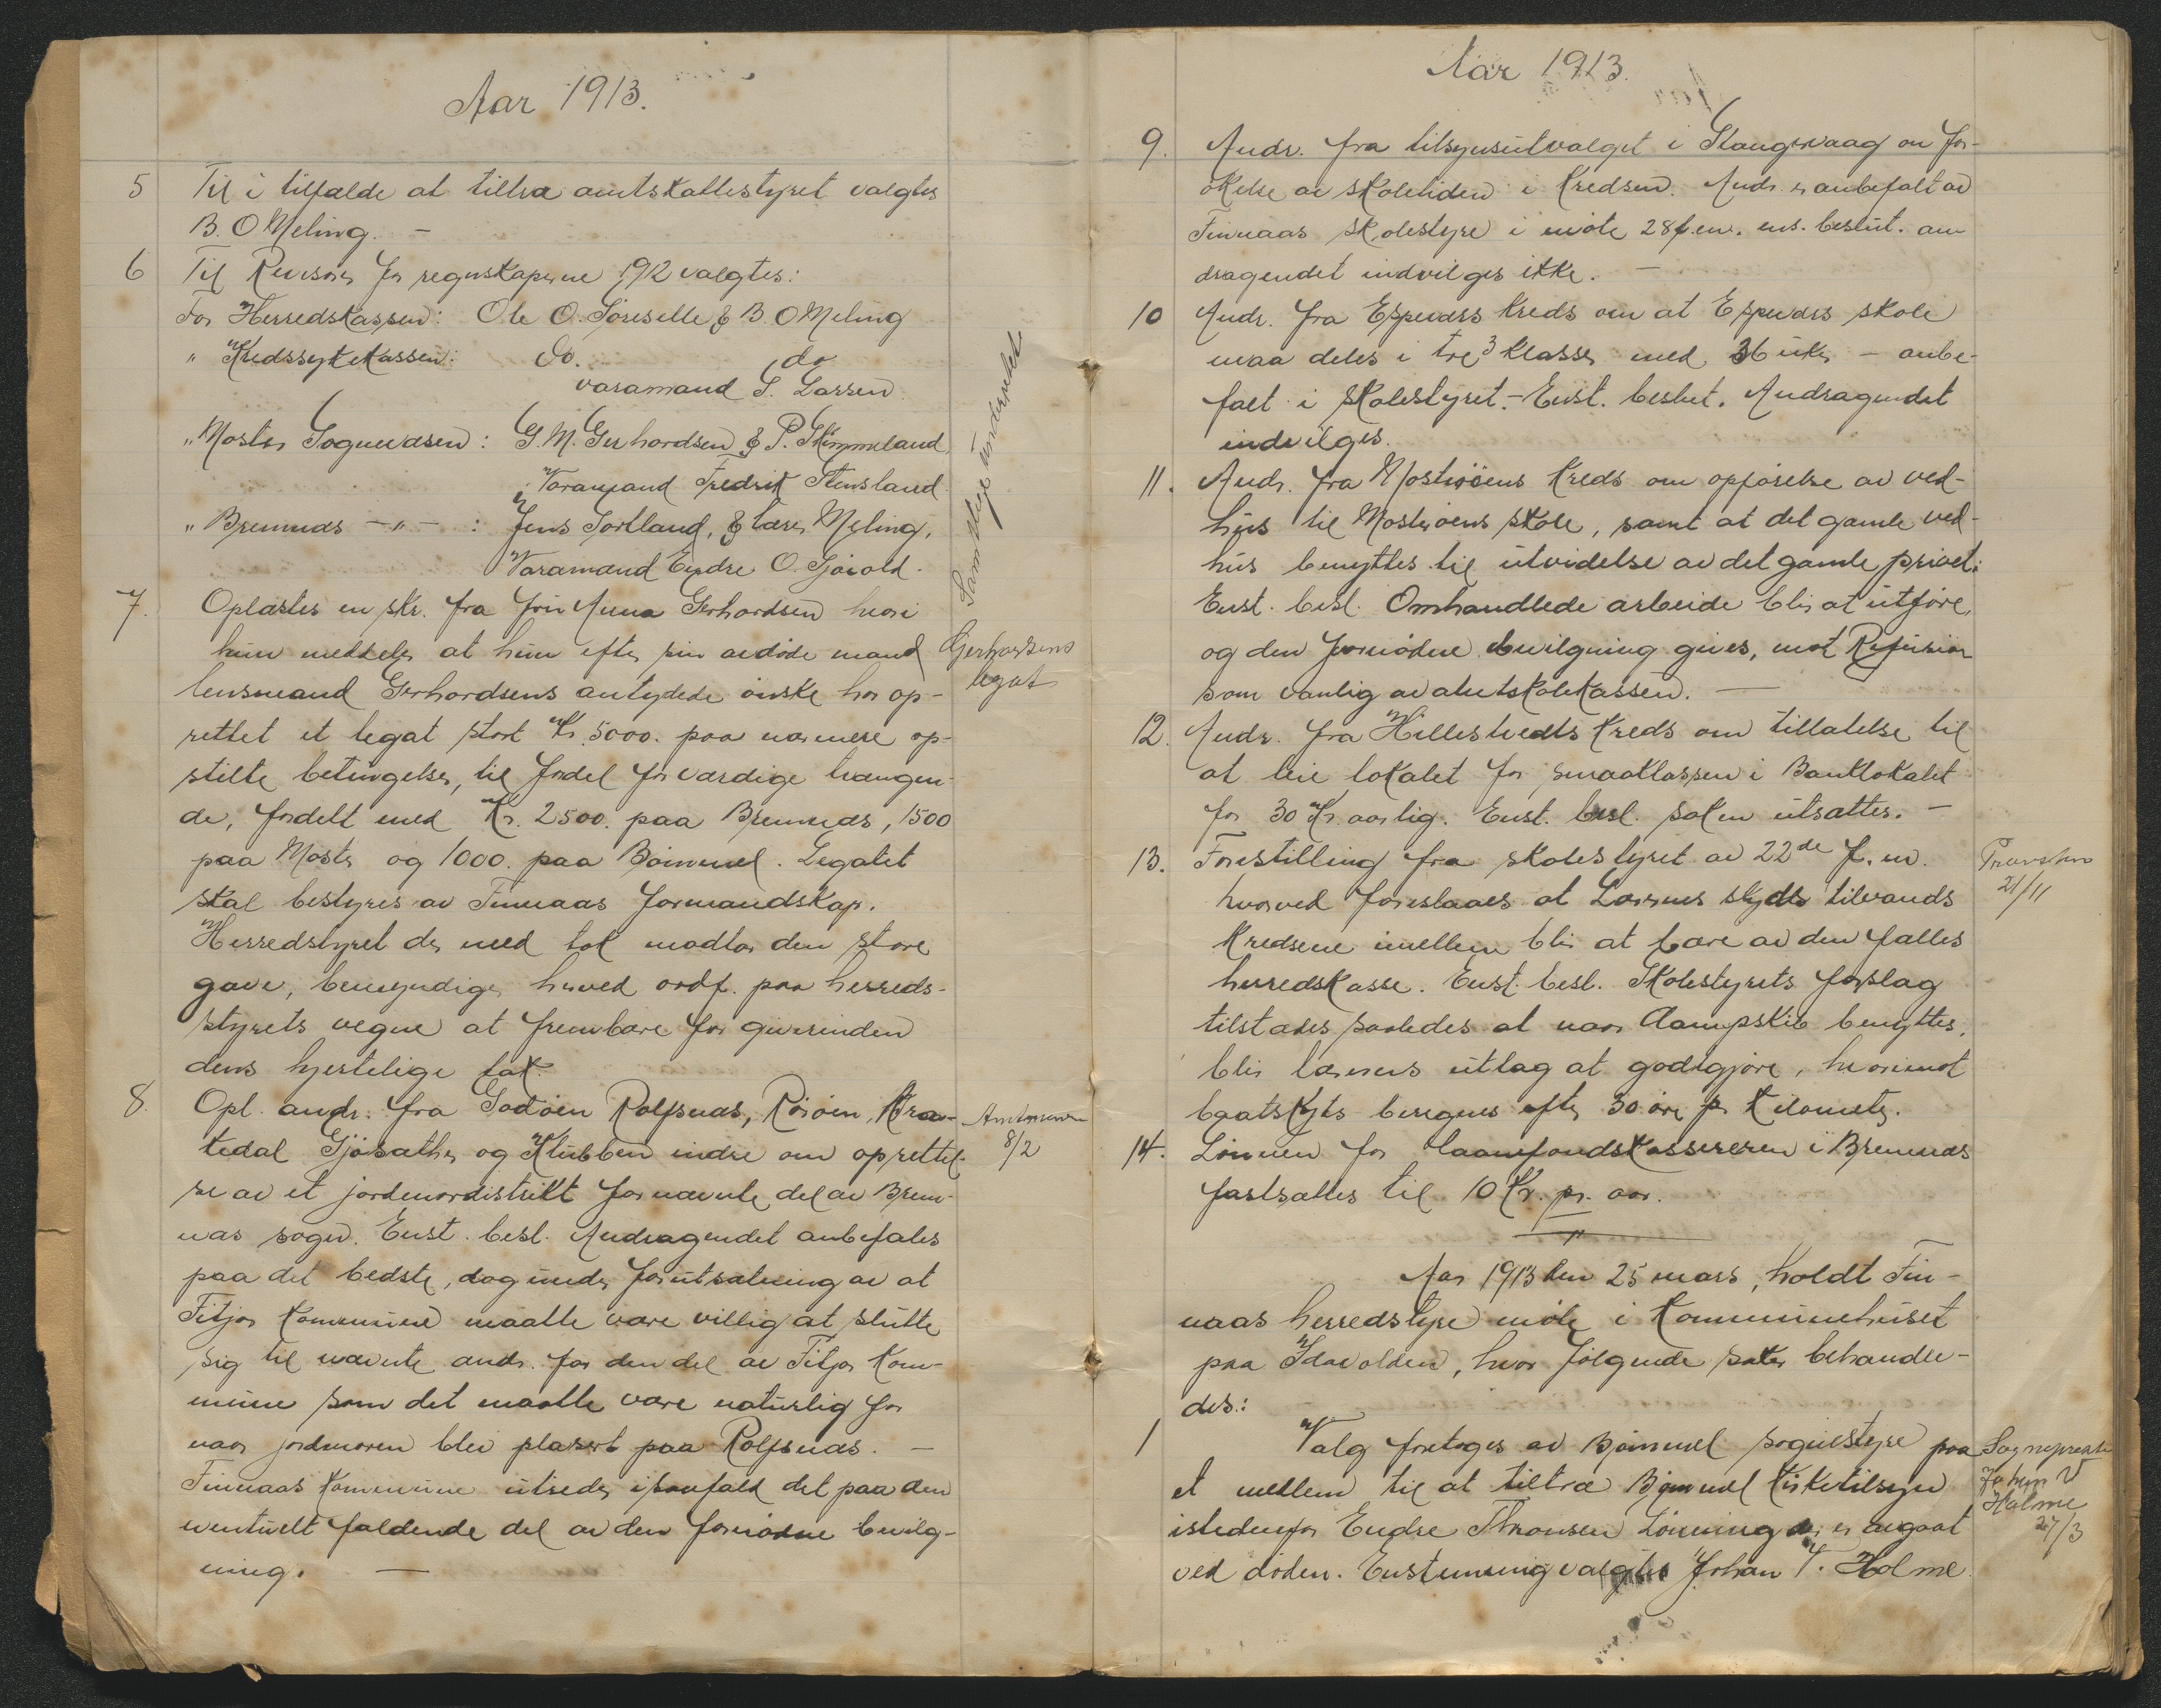 Aar 1913.
5 Til i tilfælde at tiltræ amtskattestyret valgtes
B. O Meling. –
6 Til Revisorer for regnskaperne 1912 valgtes:
For Herredskassen: Ole O. Søreselle & B. O Meling
" Kredssykekassen: Do. do
varamand S. Larsen
" Moster Sogneväsen: G. M. Gerhardsen & P. Skimmeland
Varamand Fredrik Stensland
" Bremnæs –"– : Jens Tortland, & lærer Meling,
Varamand Endre O. Gjøsold.
Samtlige underrettede
7. Oplæstes en skr. fra fru Anna Gerhardsen hvori
hun meddeler at hun efter sin avdøde mand
lensmand Gerhardsens antydede ønske har op-
rettet et legat stort Kr. 5000. paa nærmere op-
stilte betingelser, til fordel for værdige trængen-
de, fordelt med Kr. 2500. paa Bremnæs, 1500
paa Moster og 1000. paa Bømmel. Legatet
skal bestyres av Finnaas formandskap.
Herredstyret der med tak modtar den store
gave, bemyndiger herved ordf. paa herreds-
styrets vegne at frembære for giverinden
dens hjertelige tak.
Gerhardsens
legat
8. Opl. andr. fra Godøen Rolfsnæs, Røiøen, Kraa-
kedal Gjøsæther og Klubben indre om oprettel-
se av et jordmordistrikt for nævnte del av Brem-
næs sogn. Enst. besl. Andragendet anbefales
paa det bedste, dog under forutsætning av at
Fitjar kommune maatte være villig at slutte
sig til nævnte andr. for den del av Fitjar kom-
mune som det maatte være naturlig for
naar jordmoren blev plasert paa Rolfsnæs. –
Finnaas kommune utreder isaafald det paa den
eventuelt faldende del av den fornødne bevilg-
ning. –
Amtmanden
8/2
Aar 1913.
9. Andr. fra tilsynsutvalget i Stangervaag om for-
økelse av skoletiden i kredsen. Andr. er anbefalt av
Finnaas skolestyre i møte 28 f. m. ens. beslut. an-
dragendet indvilges ikke. –
10 Andr. fra Espevärs kreds om at Espevärs skole
maa deles i tre 3 klasser med 36 uker – anbe-
falt i skolestyret. – Enst. beslut. Andragendet
indvilges.
11. Andr. fra Mosterøens kreds om opførelse av ved-
hus til Mosterøens skole, samt at det gamle ved-
hus benyttes til utvidelse av det gamle privet.
Enst. besl. Omhandlede arbeide blir at utføre,
og den fornødne bevilgning gives, mot Refusion
som vanlig av amtskolekassen. –
12. Andr. fra Hillestvedts kreds om tillatelse til
at leie lokalet for smaaklassen i Banklokalet
for 30 Kr. aarlig. Enst. besl. saken utsattes. –
13. Forestilling fra skolestyret av 22de f. m.
hvorved foreslaaes at Lærernes skyds tilvands
kredsene imellem blir at bære av den fælles
herredskasse. Enst. besl. Skolestyrets forslag
tilstædes saaledes at naar dampskib benyttes,
blir lærerens utlæg at godtgjøre, hvorimot
baatskyts beregnes efter 30 øre pr kilometer.
21/11
14. Lønnen for laanefondskassereren i Bremnæs
fastsættes til 10 Kr. pr. aar.
"
Aar 1913 den 25 mars, holdt Fin-
naas herredstyre møte i Kommunehuset
paa Idavolden, hvor følgende saker behandle-
des.:
1 Valg foretoges av Bømmel sognestyre paa
et medlem til at tiltræ Bømmel kirketilsyn
istedenfor Endre Thronsen Lønning der er avgaat
ved døden. Enstemmig valgtes Johan V. Holme
Sogneprest
Johan V
Holme
27/3